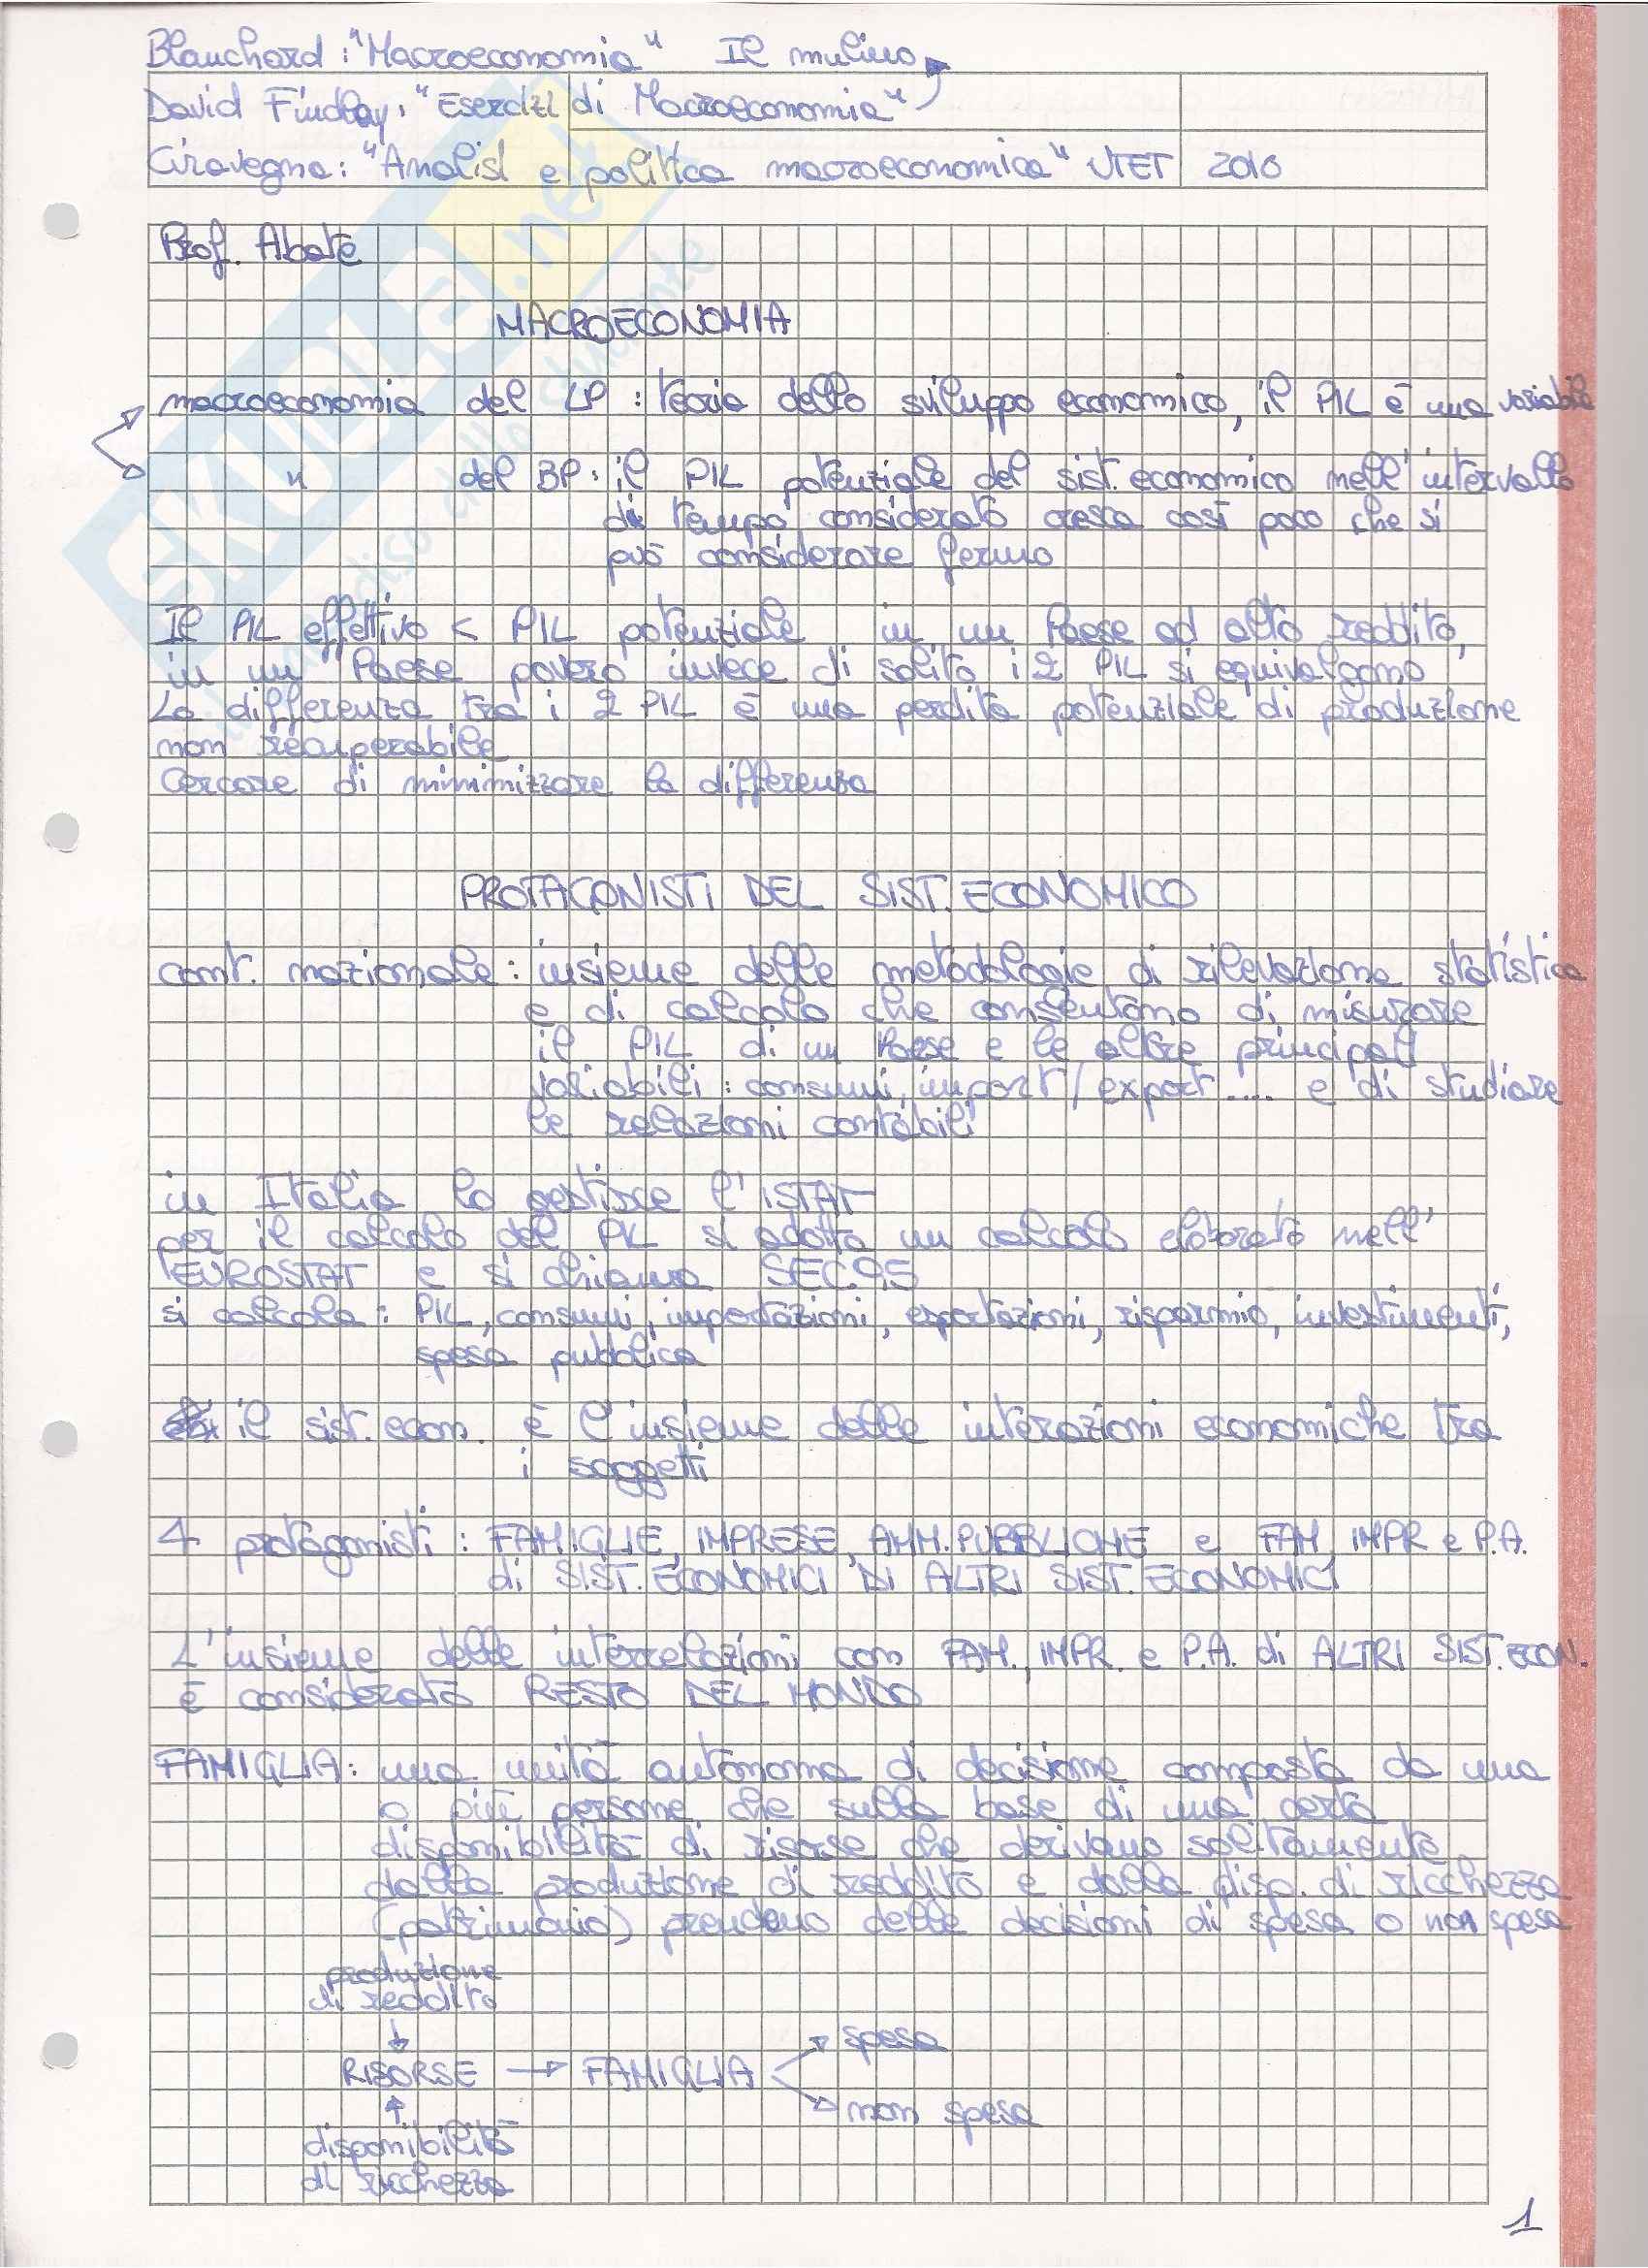 Blanchard: "Macroeconomia" Il mulino
David Findlay: "Esercizi di Macroeconomia"
Ciravegna: "Analisi e politica macroeconomica" UTET 2010
Prof. Abate
MACROECONOMIA
macroeconomia del LP: teoria dello sviluppo economico, il PIL è una variabile
" del BP: il PIL potenziale del sist. economico nell'intervallo
di tempo considerato cresce così poco che si
può considerare fermo
Il PIL effettivo < PIL potenziale in un Paese ad alto reddito,
in un Paese povero invece di solito i 2 PIL si equivalgono
La differenza tra i 2 PIL è una perdita potenziale di produzione
non recuperabile
Cercare di minimizzare la differenza
PROTAGONISTI DEL SIST. ECONOMICO
cont. nazionale: insieme delle metodologie di rilevazione statistica
e di calcolo che consentono di misurare
il PIL di un Paese e le altre principali
variabili: consumi, import/export .... e di studiare
le relazioni contabili
in Italia lo gestisce l'ISTAT
per il calcolo del PIL si adotta un calcolo elaborato nell'
EUROSTAT e si chiama SEC95
si calcola: PIL, consumi, importazioni, esportazioni, risparmio, investimenti,
spesa pubblica
il sist. econ. è l'insieme delle interazioni economiche tra
i soggetti
4 protagonisti: FAMIGLIE, IMPRESE, AMM. PUBBLICHE e FAM, IMPR e P.A.
di SIST. ECONOMICI DI ALTRI SIST. ECONOMICI
L'insieme delle interrelazioni con FAM., IMPR. e P.A. di ALTRI SIST. ECON.
è considerato RESTO DEL MONDO
FAMIGLIA: una unità autonoma di decisione composta da una
o più persone che sulla base di una certa
disponibilità di risorse che derivano solitamente
dalla produzione di reddito e dalla disp. di ricchezza
(patrimonio) prendono delle decisioni di spesa o non spesa
produzione
di reddito
spesa
RISORSE → FAMIGLIA
non spesa
disponibilità
di ricchezza
1
SKUOLA.net